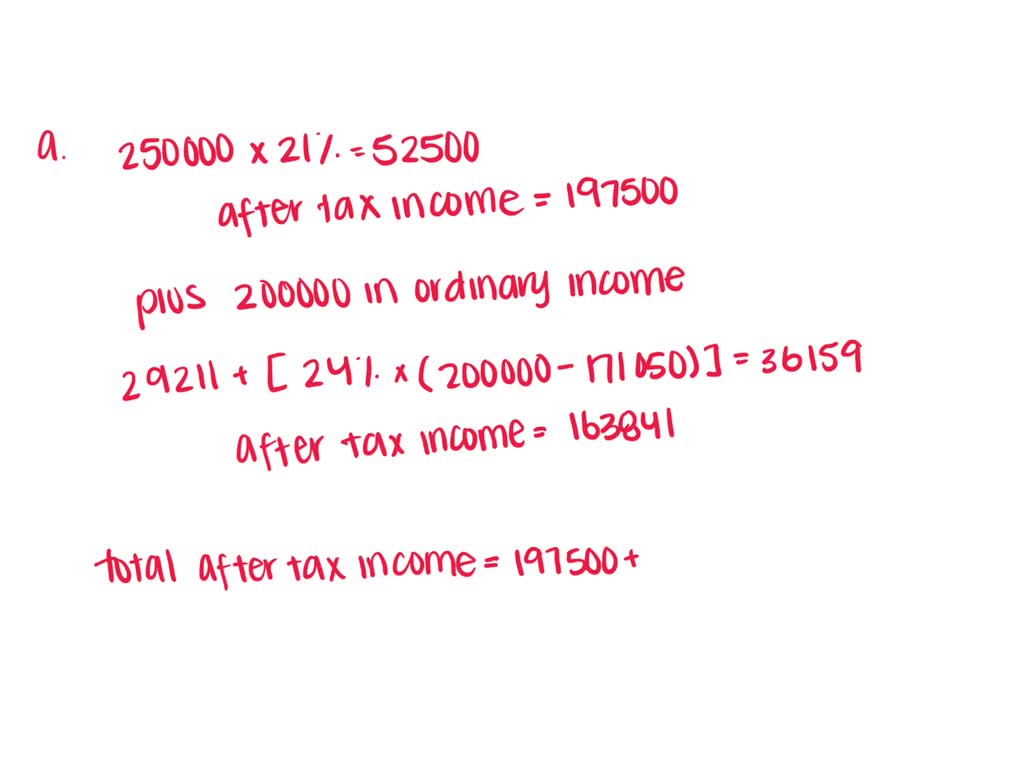 a. 250000 x 21% = 52500
after tax income = 197500
plus 200000 in ordinary income
29211 + [ 24% x (200000 - 171050)] = 36159
after tax income = 163841
total after tax income = 197500 +